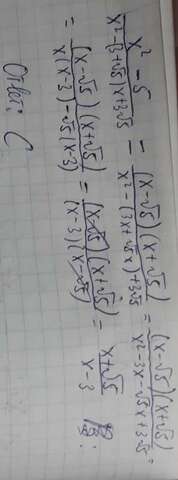 x² - 5 / x² - (3 + √5)x + 3√5 = (x - √5)(x + √5) / x² - (3x + √5x) + 3√5 = (x - √5)(x + √5) / x² - 3x - √5x + 3√5 =
= (x - √5)(x + √5) / x(x - 3) - √5(x - 3) = (x - √5)(x + √5) / (x - 3)(x - √5) = x + √5 / x - 3
Ответ: C